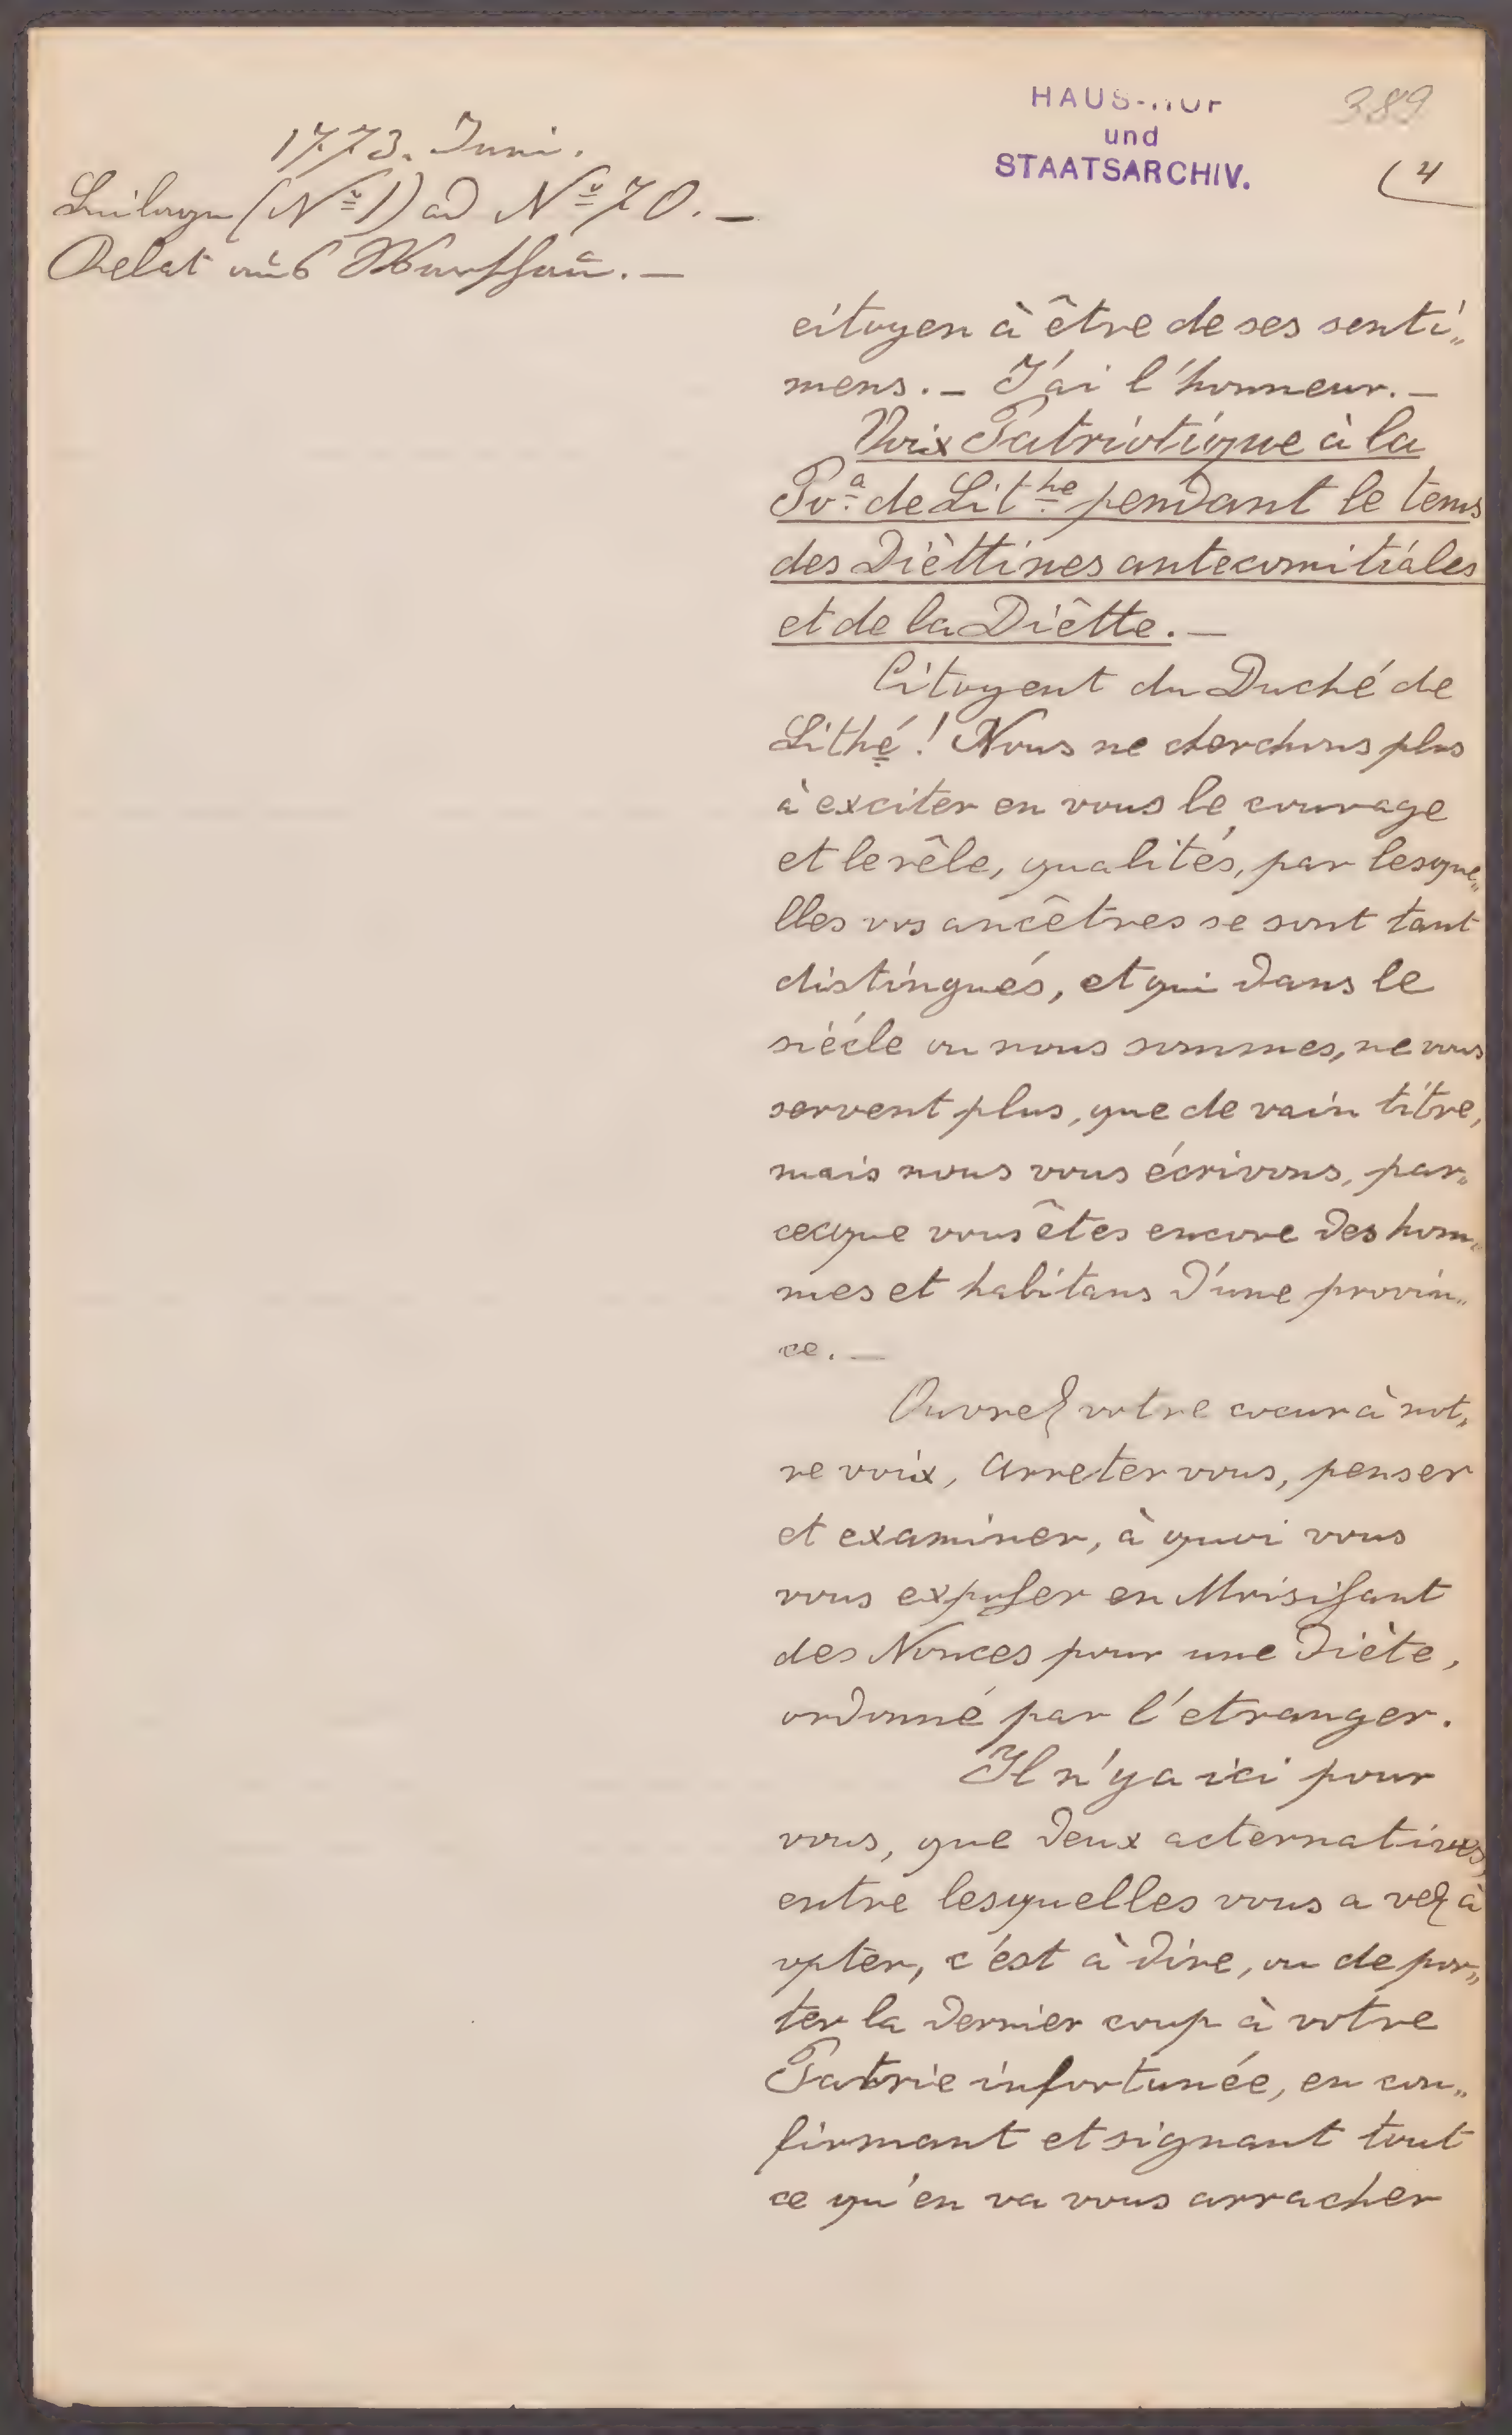 HAUS-HOF
und
STAATSARCHIV.
389
(4
1773. Juni.
Beilage (N° 1) ad N° 70. —
Relat aus Warschau. —
citoyen à être de ses senti„
mens. — J'ai l'honneur. —
Voix Patriotique à la
Pvª de Lithe pendant le tems
des Dièttines antecomitiáles
et de la Diêtte. —
Citoyent du Duché de
Lithé! Nous ne cherchons plus
à exciter en vous le courage
et le rêle, qualités, par lesque„
lles vos ancêtres se sont tant
distingués, et qui dans le
siécle ou nous sommes, ne vous
servent plus, que de vain titre,
mais nous vous écrivons, par„
ceque vous êtes encore des hom„
mes et habitans d'une provin„
ce. —
Ouvrez votre coeur à not„
re voix, arreter vous, penser
et examiner, à quoi vous
vous exposer en Mrisisant
des Nonces pour une Diète,
ordonné par l'etranger.
Il n'y a ici pour
vous, que deux acternatives,
entre lesquelles vous a vez à
opter, c'ést à dire, ou de por„
ter la dernier coup à votre
Patrie infortunée, en con„
firmant et signant tout
ce qu'en va vous arracher